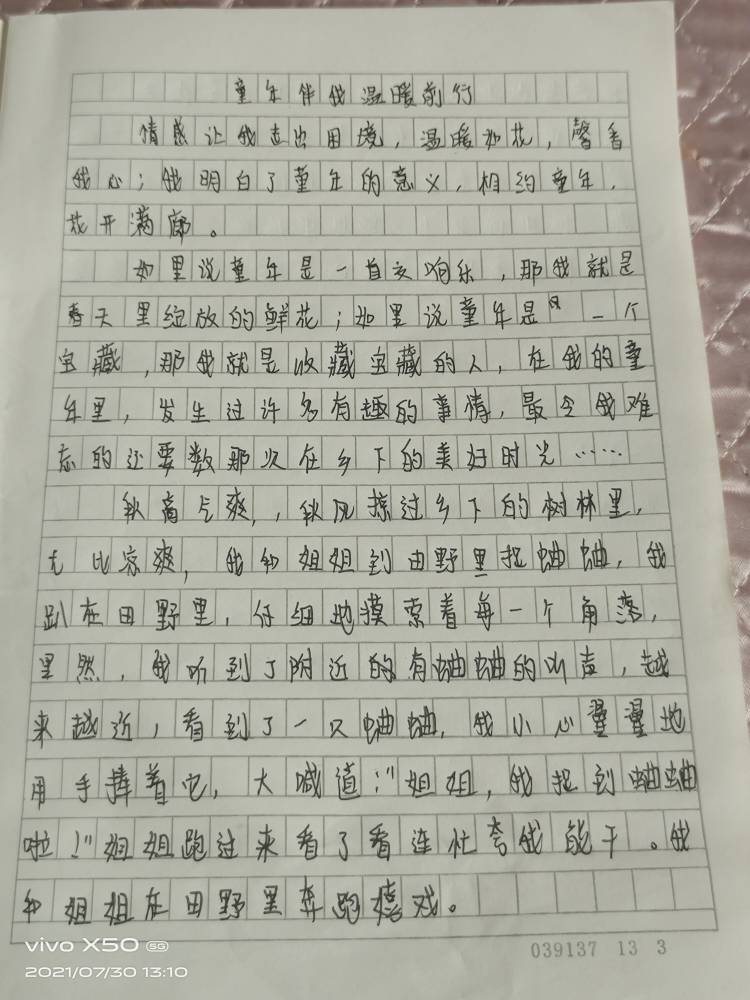 童年伴我温暖前行
情感让我走出困境，温暖如花，馨香
我心；我明白了童年的意义，相约童年，
花开满廊。
如果说童年是一首交响乐，那我就是
春天里绽放的鲜花；如果说童年是一个
宝藏，那我就是收藏宝藏的人，在我的童
年里，发生过许多有趣的事情，最令我难
忘的还要数那次在乡下的美好时光……
秋高气爽，，秋风掠过乡下的树林里，
尢比凉爽，我和姐姐到田野里捉蛐蛐，我
趴在田野里，仔细地摸索着每一个角落，
果然，我听到了附近的有蛐蛐的叫声，越
来越近，看到了一只蛐蛐，我小心翼翼地
用手捧着它，大喊道：“姐姐，我捉到蛐蛐
啦！”姐姐跑过来看了看连忙夸我能干。我
和姐姐在田野里奔跑嬉戏。
vivo X50 5G
2021/07/30 13:10
039137 13 3